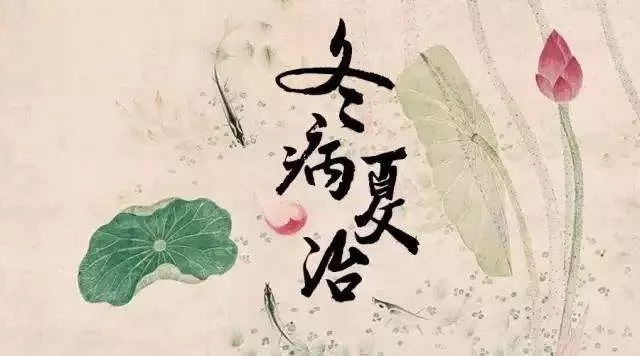 冬病夏治